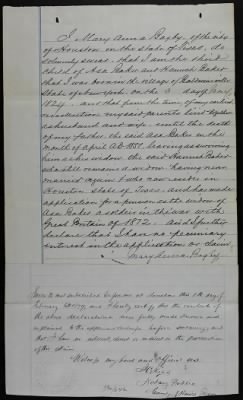 I Mary Anna Bagby, of the city
of Houston in the state of Texas, do
solemnly swear, that I am the third
child of Asa Baker and Hannah Baker
that I was born in the village of Baldwinsville
State of New York on the 3 day of Jany
1824. and that from the time of my earliest
recollection, my said parents lived together
as husband and wife until the death
of my father, the said Asa Baker in the
month of April A.D. 1851. leaving as surviving
him as his widow the said Hannah Baker
who still remains a widow having never
married again & who now resides in
Houston state of Texas and has made
application for a pension as the widow of
Asa Baker a soldier in the war with
Great Britain of 1812. And I further
declare that I have no pecuniary
interest in the application or claim.
Mary Anna Bagby
Sworn to and subscribed before me at Houston this 5th day of
February 1879, and I hereby certify that the contents of
the above declaration were fully made known and
explained to the applicant before swearing and
that I have no interest, direct or indirect in the prosecution
of this claim
Witness my hand and official seal
Notary Public
County of Harris Texas